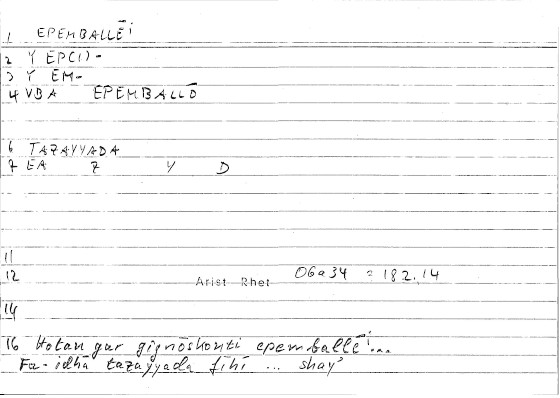 1 EPEMBALLĒⁱ
2 Y EP(I)-
3 Y EM-
4 VBA EPEMBALLŌ
6 TAZAYYADA
7 EA Z Y D
11
12 Arist Rhet 06a34 = 182,14
14
16 Hotan gar gignōskonti epemballēⁱ...
Fa-idhā tazayyada fīhi ... shay'